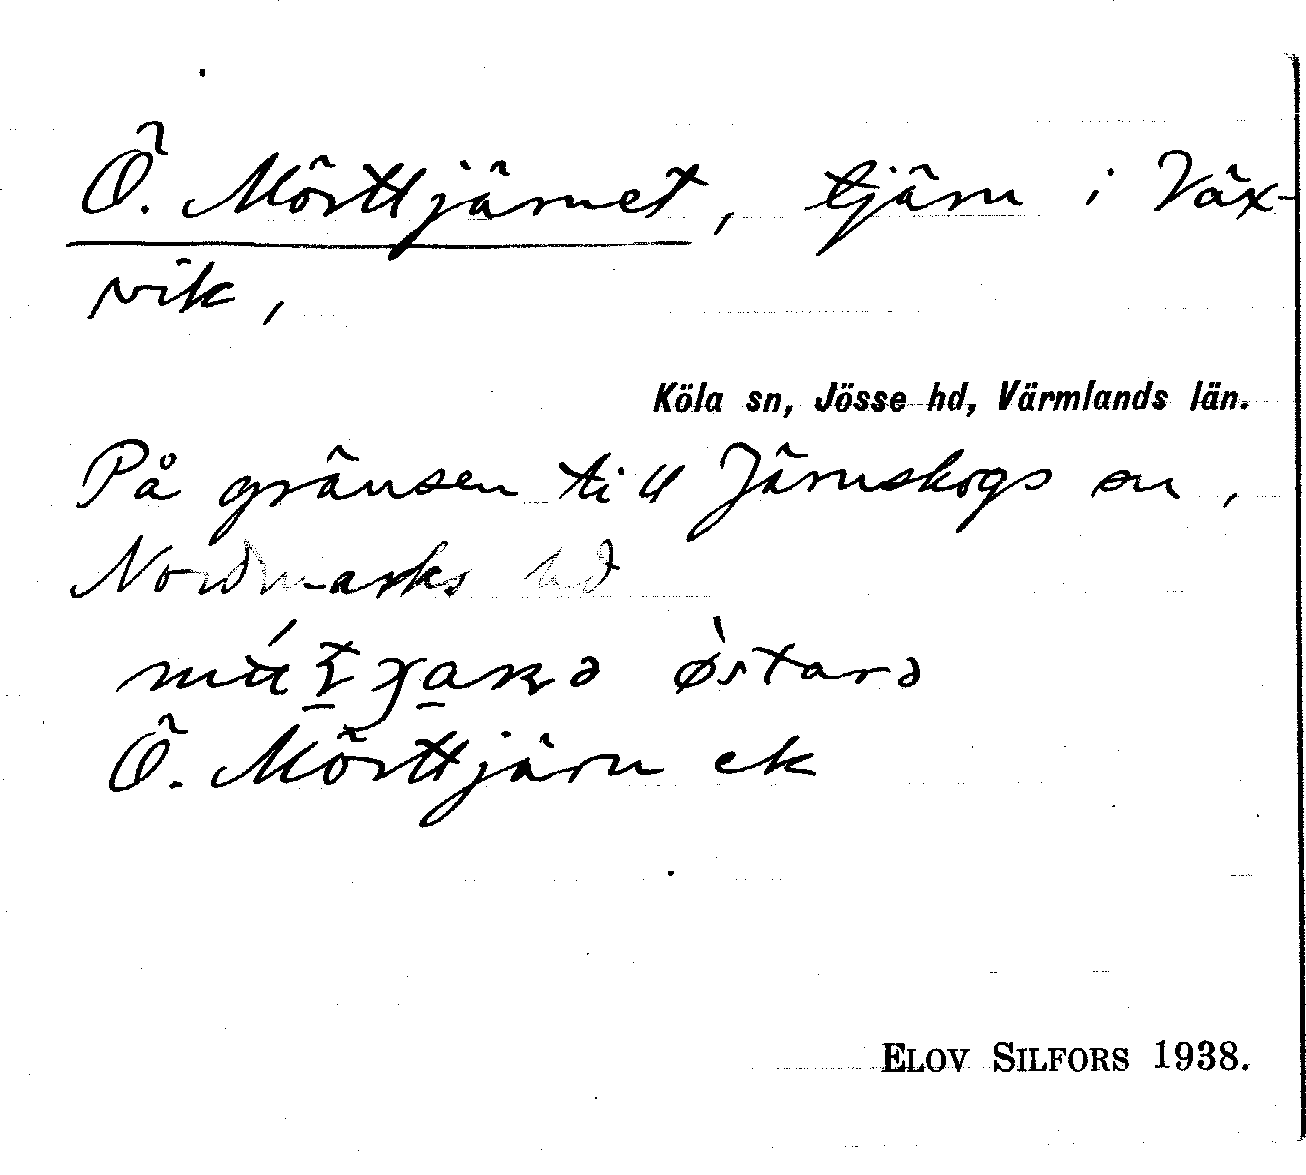 Ö. Mörttjärnet, tjärn i Väx-
vik,
Köla sn, Jösse hd, Värmlands län.
På gränsen till Järnskogs sn,
Nordmarks hd
østarə
Ö. Mörttjärn ek
ELOV SILFORS 1938.